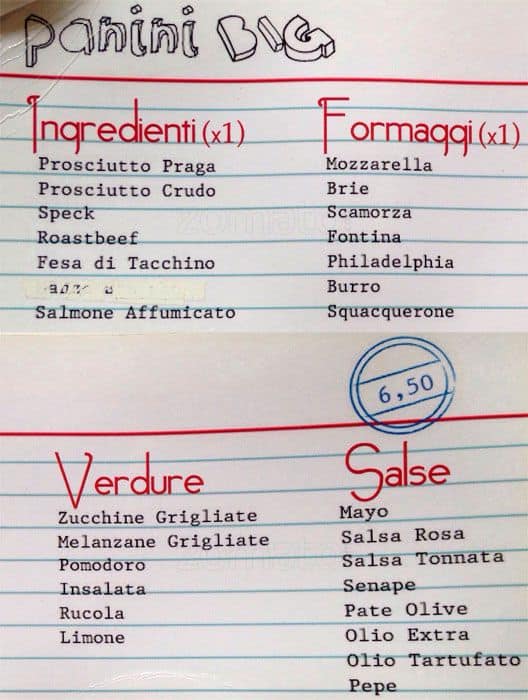 Panini BIG
Ingredienti (x1)
Prosciutto Praga
Prosciutto Crudo
Speck
Roastbeef
Fesa di Tacchino
Salmone Affumicato
Formaggi (x1)
Mozzarella
Brie
Scamorza
Fontina
Philadelphia
Burro
Squacquerone
6,50
Verdure
Zucchine Grigliate
Melanzane Grigliate
Pomodoro
Insalata
Rucola
Limone
Salse
Mayo
Salsa Rosa
Salsa Tonnata
Senape
Pate Olive
Olio Extra
Olio Tartufato
Pepe